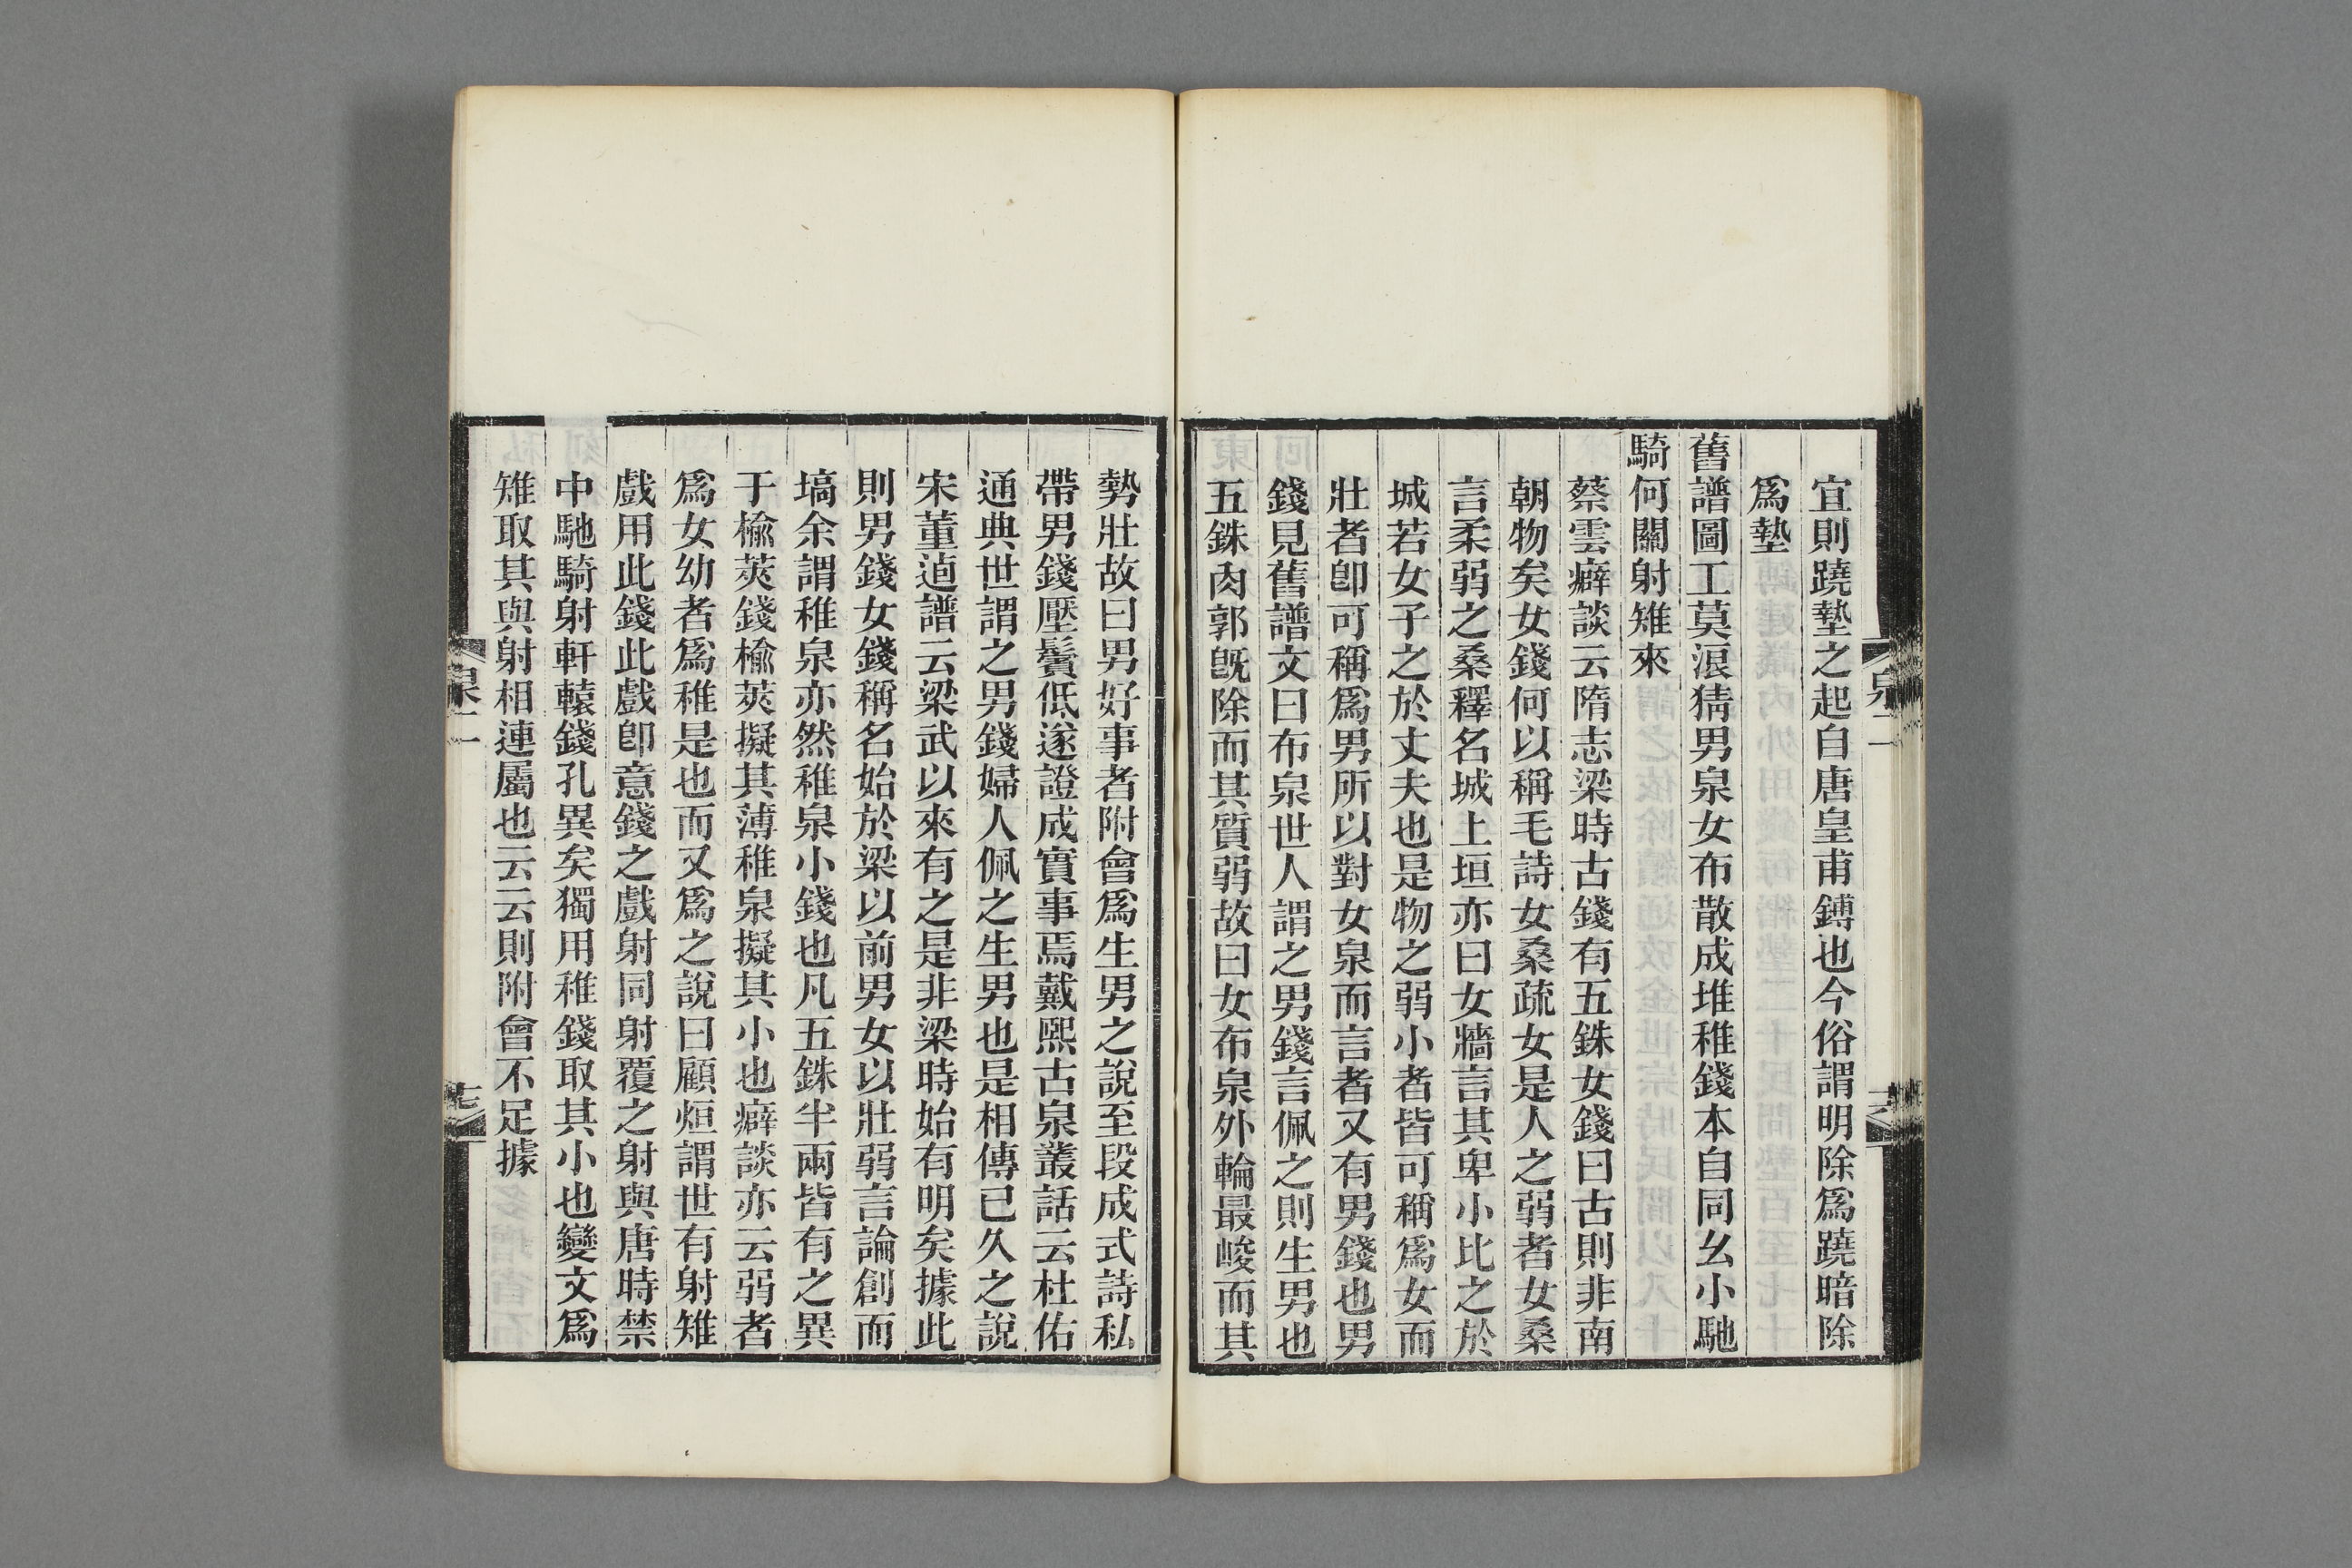 宜則蹺墊之起自唐皇甫鎛也今俗謂明除爲蹺暗除
爲墊
舊譜圖工莫浪猜男泉女布散成堆稚錢本自同幺小馳
騎何關射雉來
蔡雲癖談云隋志梁時古錢有五銖女錢曰古則非南
朝物矣女錢何以稱毛詩女桑疏女是人之弱者女桑
言柔弱之桑釋名城上垣亦曰女牆言其卑小比之於
城若女子之於丈夫也是物之弱小者皆可稱爲女而
壯者卽可稱爲男所以對女泉而言者又有男錢也男
錢見舊譜文曰布泉世人謂之男錢言佩之則生男也
五銖肉郭旣除而其質弱故曰女布泉外輪最峻而其
勢壯故曰男好事者附會爲生男之說至段成式詩私
帶男錢壓鬢低遂證成實事焉戴熙古泉叢話云杜佑
通典世謂之男錢婦人佩之生男也是相傳已久之說
宋董逌譜云梁武以來有之是非梁時始有明矣據此
則男錢女錢稱名始於梁以前男女以壯弱言論創而
塙余謂稚泉亦然稚泉小錢也凡五銖半兩皆有之異
于楡莢錢楡莢擬其薄稚泉擬其小也癖談亦云弱者
爲女幼者爲稚是也而又爲之說曰顧烜謂世有射雉
戲用此錢此戲卽意錢之戲射同射覆之射與唐時禁
中馳騎射軒轅錢孔異矣獨用稚錢取其小也變文爲
雉取其與射相連屬也云云則附會不足據
泉二
六
泉二
七